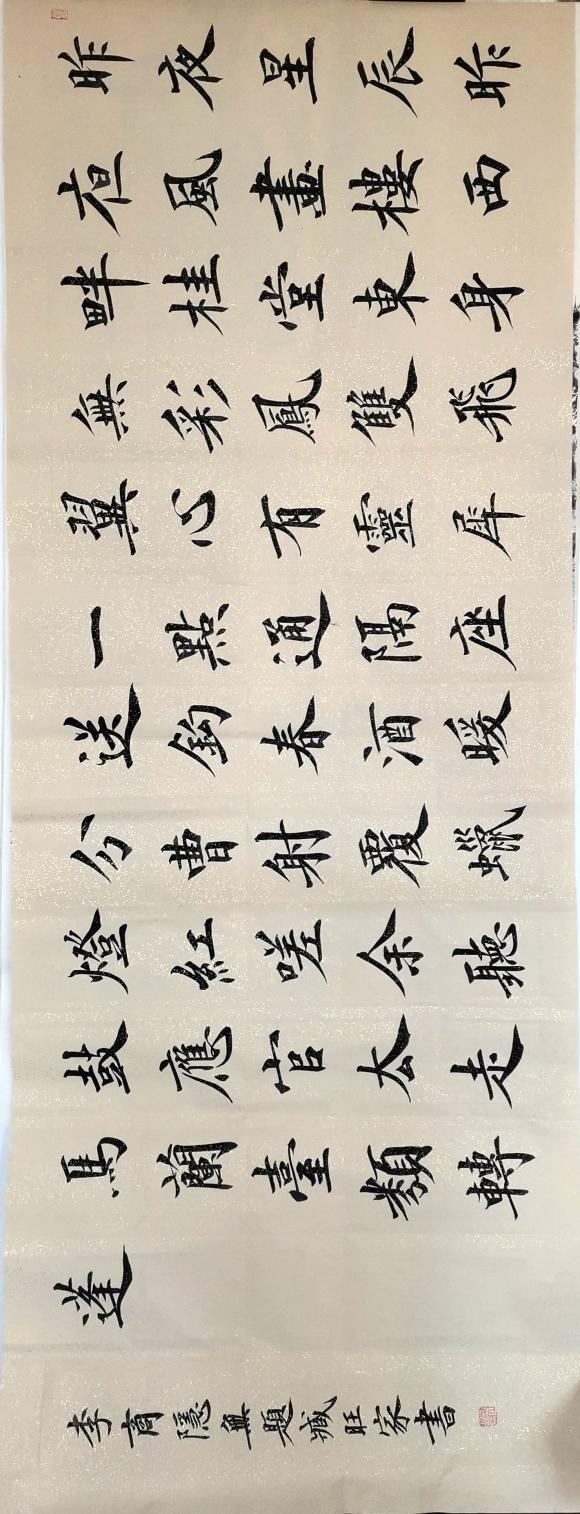 昨夜星辰昨
亱風畫樓西
畔桂堂東身
無彩鳳雙飛
翼心有靈犀
一點通隔座
送鈎春酒暖
分曹射覆蠟
燈紅嗟余聽
鼓應官厺走
馬蘭臺類轉
蓬
李商隱無題臧旺家書